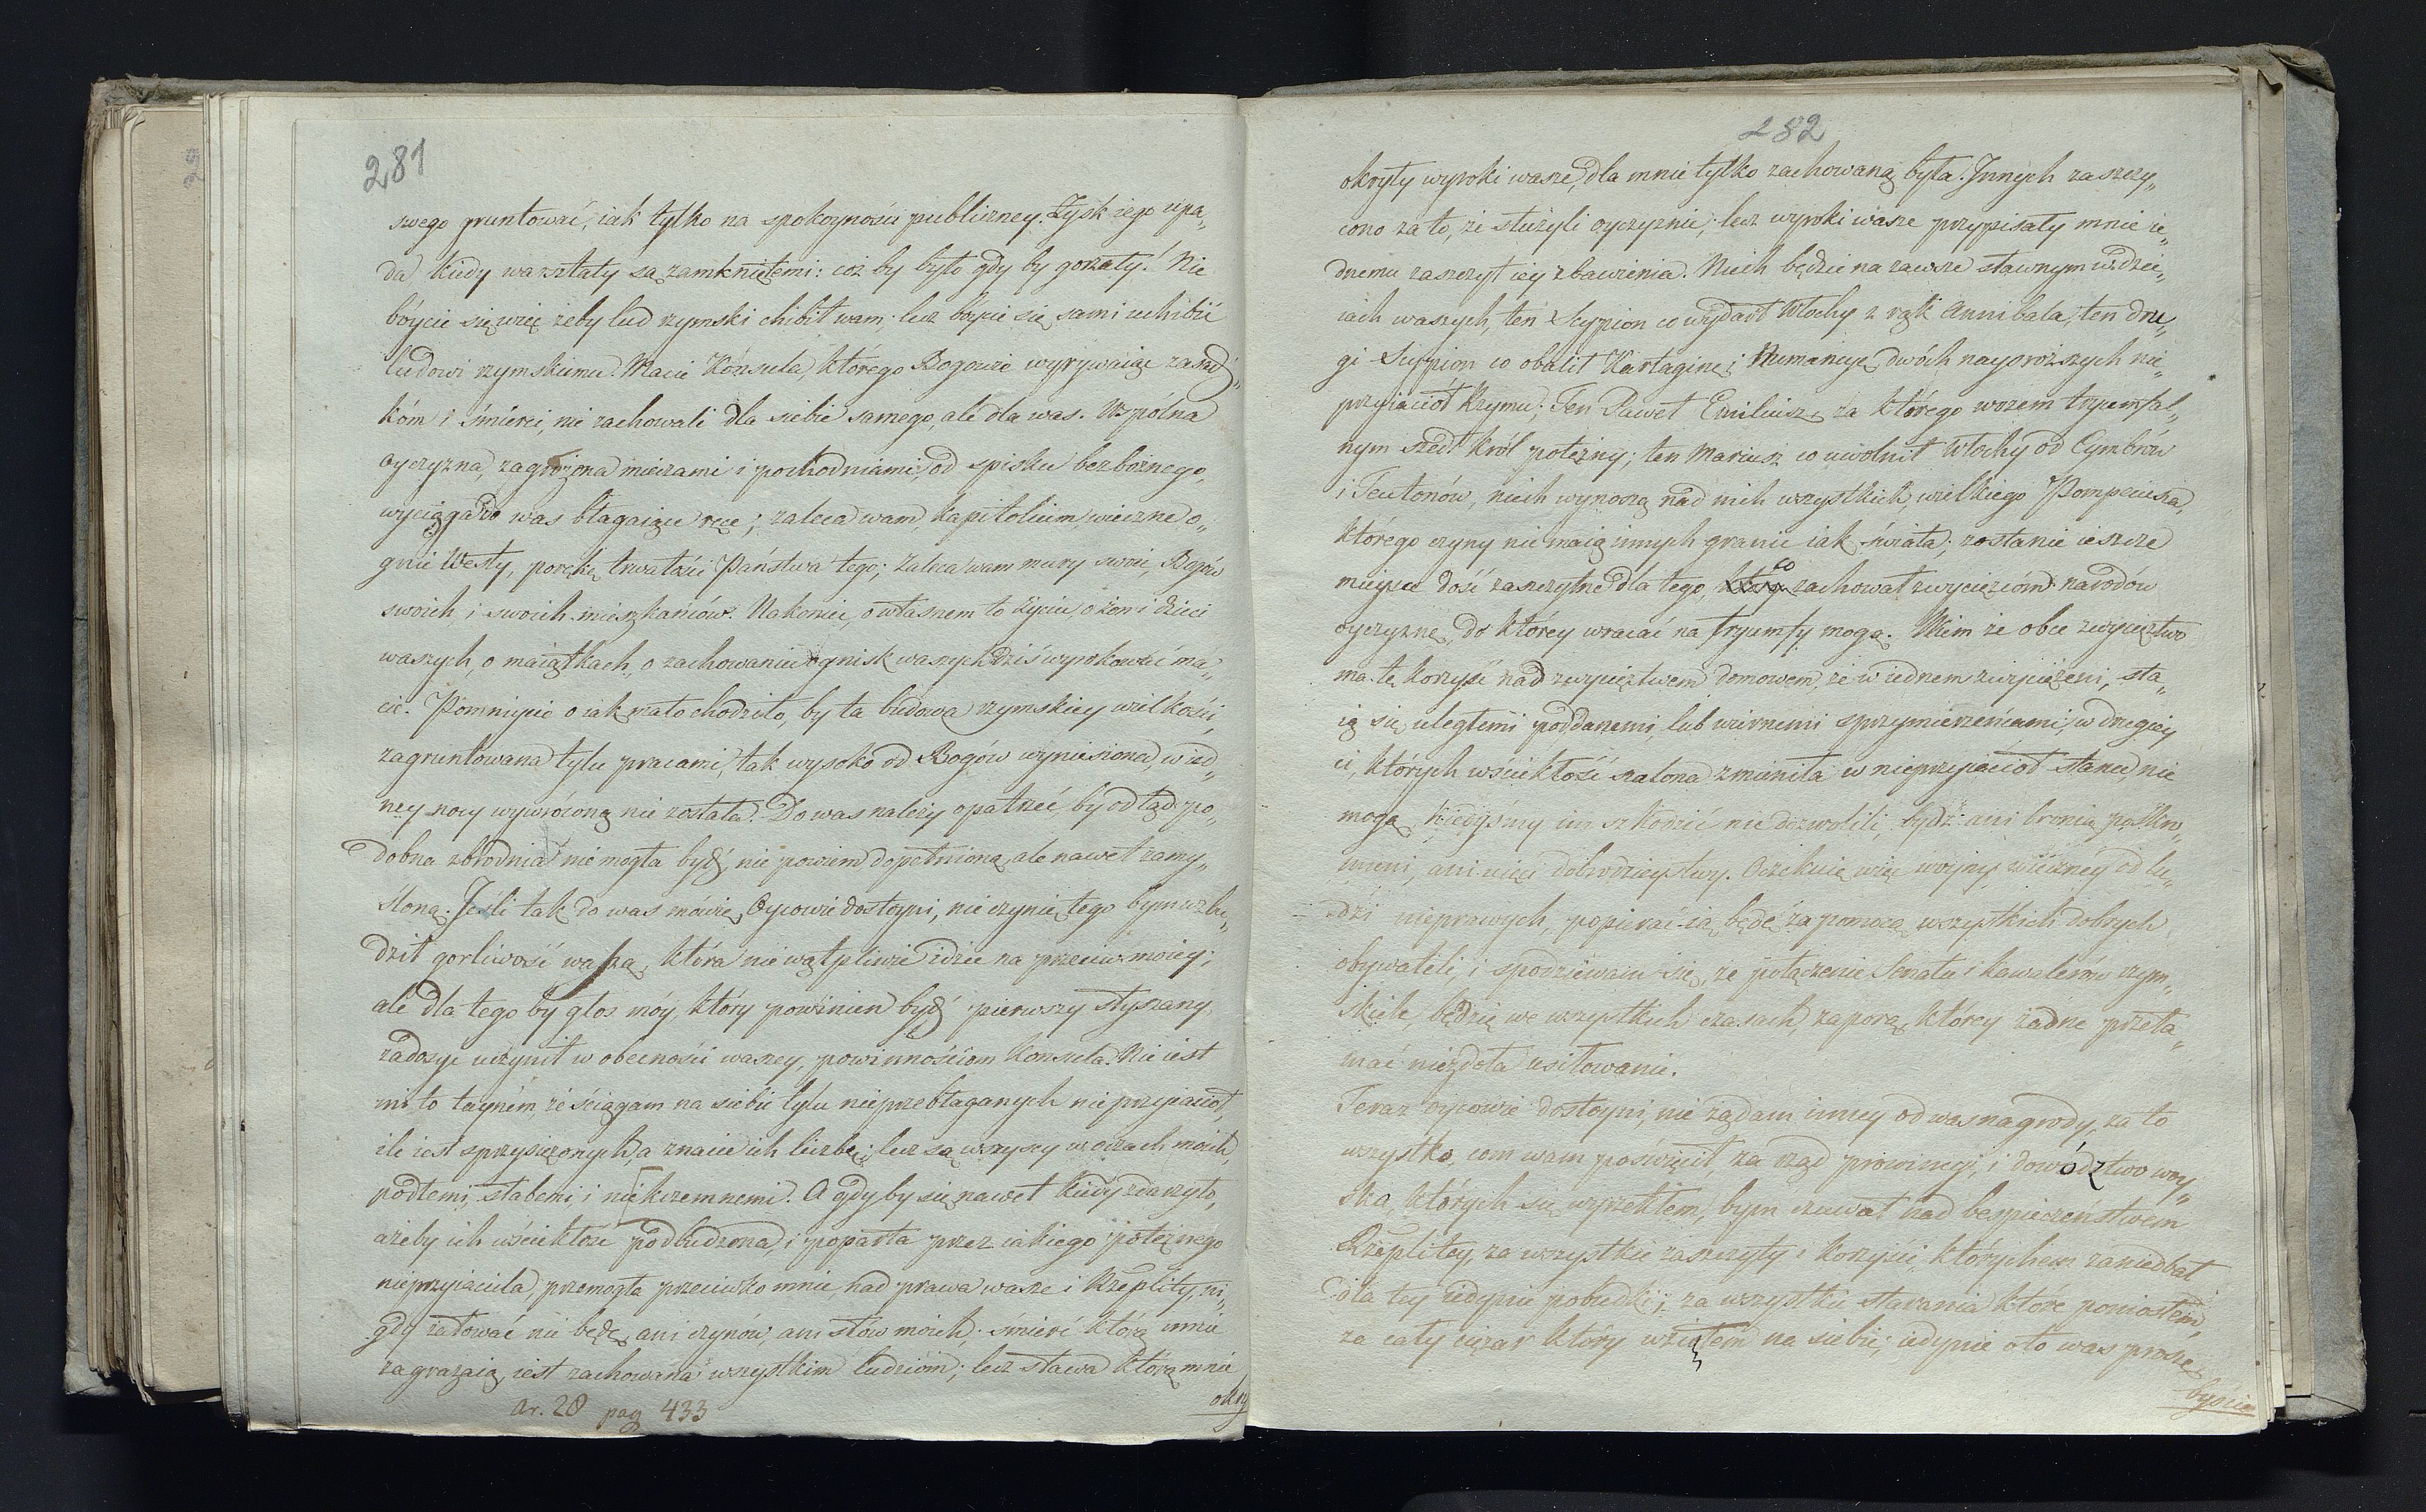 281
swego gruntować, iak tylko na spokoyności publiczney. Zysk iego upa„
da kiedy warsztaty są zamkniętemi: cóż by było gdy by gorzały! Nie
bóycie się więc żeby lud rzymski chibił wam; lecz bóycie się sami uchibić
ludowi rzymskiemu. Macie Konsula, którego Bogowie wyrywaiąc zasadz„
kóm i śmierci, nie zachowali dla siebie samego, ale dla was. Wspólna
oyczyzna, zagrożona mieczami i pochodniami, od spisku bezbożnego,
wyciąga do was błagaiące ręce; zaleca wam, kapitolium, wieczne o„
gnie Westy, porękę trwałości Państwa tego; zaleca wam mury swoie, Bogów
swoich, i swoich mieszkańców. Nakoniec, o własnem to życiu, o żon i dzieci
waszych, o maiątkach, o zachowaniu ognisk waszych dziś wyrokować ma„
cie. Pomniycie o iak mało chodziło, by ta budowa rzymskiey wielkości,
zagruntowana tylu pracami, tak wysoko od Bogów wyniesiona, w ied„
ney nocy wywróconą nie została. Do was należy opatrzeć, by odtąd po„
dobna zbrodnia nie mogła bydź, nie powiem dopełnioną, ale nawet zamy„
śloną. Jeśli tak do was mówię, Oycowie dostoyni, nie czynię tego bym wzbu„
dził gorliwość waszą, która niewątpliwie idzie na przeciw moiey;
ale dla tego by głos móy, który powinien bydź pierwszy słyszany,
zadosyć uczynił w obecności waszey, powinnościom Konsula. Nie iest
mi to taynem, że ściągam na siebie tylu nieprzebłaganych nieprzyiaciół,
ile iest sprzysiężonych, a znacie ich liczbę; lecz są wszyscy w oczach moich,
podłemi, słabemi, i nikczemnemi. A gdyby się nawet kiedy zdarzyło,
ażeby ich wściekłość podbudzona, i poparta przez iakiego potężnego
nieprzyiaciela, przemogła przeciwko mnie, nad prawa wasze i Rzeplity, ni„
gdy żałować nie będę, ani czynów, ani słów moich; śmierć którą mnie
zagrażaią, iest zachowana wszystkim ludziom; lecz sława którą mnie
okry
ar. 28 pag 433
282
okryły wyroki wasze, dla mnie tylko zachowaną była. Innych zaszczy„
cono za to, że służyli oyczyznie; lecz wyroki wasze przypisały mnie ie„
dnemu zaszczyt iey zbawienia. Niech będzie na zawsze sławnym w dzie„
iach waszych, ten Scypion co wydarł Włochy z rąk Annibala, ten dru„
gi Scypion co obalił Kartaginę i Numancyę, dwóch naysroższych nie„
przyiaciół Rzymu; Ten Paweł Emiliusz, za którego wozem tryumfal„
nym szedł król potężny; ten Mariusz co uwolnił Włochy od Cymbrów
i Teutonów, niech wynoszą nad nich wszystkich, wielkiego Pompeiusza,
którego czyny nie maią innych granic iak świata; zostanie ieszcze
mieysce dość zaszczytne dla tego, co zachował zwycięzcom narodów
oyczyznę, do którey wracać na tryumfy mogą. Wiem że obce zwycięztwo
ma tę korzyść nad zwycięztwem domowem, że w iednem zwyciężeni, sta„
ią się uległemi poddanemi, lub wiernemi sprzymierzeńcami; w drugiey
ci, których wściekłość szalona zmieniła w nieprzyiaciół stanu, nie
mogą, kiedyśmy im szkodzić nie dozwolili, bydź ani bronią poskro„
mieni, ani uięci dobrodzieystwy. Oczekuię więc woyny wieczney od lu„
dzi nieprawych, popierać ią będę za pomocą wszystkich dobrych
obywateli, i spodziewam się, że połączenie Senatu i kawalerów rzym„
skich, będzie we wszystkich czasach, zaporą, którey żadne przeła„
mać niezdoła usiłowanie.
Teraz oycowie dostoyni, nie żądam inney od was nagrody, za to
wszystko, com wam poświęcił, za rząd prowincyi, i dowództwo woy„
ska, których się wyrzekłem, bym czuwał nad bespieczeństwem
Rzeplitey, za wszystkie zaszczyty i korzyści, którychem zaniedbał
dla tey iedynie pobudki; za wszystkie starania które poniosłem,
za cały ciężar który wziąłem na siebie; iedynie oto was proszę,
byście